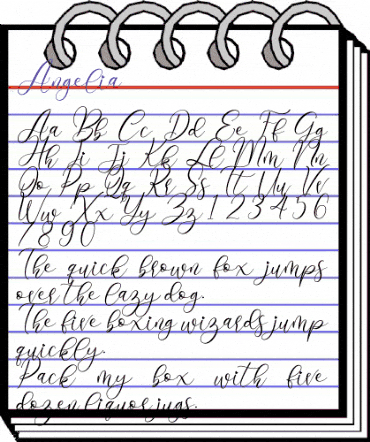 Angelia
Aa Bb Cc Dd Ee Ff Gg
Hh Ii Jj Kk Ll Mm Nn
Oo Pp Qq Rr Ss Tt Uu Vv
Ww Xx Yy Zz 1 2 3 4 5 6
7 8 9 0
The quick brown fox jumps
over the lazy dog.
The five boxing wizards jump
quickly.
Pack my box with five
dozen liquor jugs.